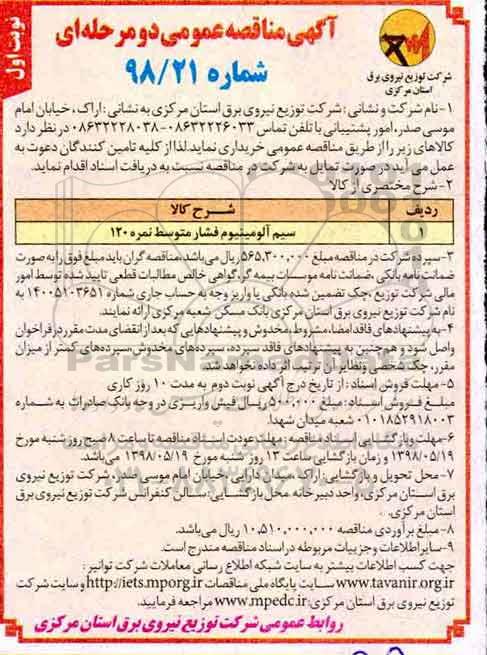 نوبت اول
آگهی مناقصه عمومی دو مرحله‌ای
شماره ۹۸/۲۱
شرکت توزیع نیروی برق
استان مرکزی
۱-نام شرکت و نشانی : شرکت توزیع نیروی برق استان مرکزی به نشانی : اراک ، خیابان امام
موسی صدر، امور پشتیبانی با تلفن تماس ۰۸۶۳۲۲۲۶۰۳۳-۰۸۶۳۲۲۲۸۰۳۸ در نظر دارد
کالاهای زیر را از طریق مناقصه عمومی خریداری نماید. لذا از کلیه تامین کنندگان دعوت به
عمل می آید در صورت تمایل به شرکت در مناقصه نسبت به دریافت اسناد اقدام نماید.
۲-شرح مختصری از کالا
ردیف شرح کالا
۱ سیم آلومینیوم فشار متوسط نمره ۱۲۰
۳-سپرده شرکت در مناقصه مبلغ ۵۶۵,۳۰۰,۰۰۰ ریال می باشد، مناقصه گران باید مبلغ فوق را به صورت
ضمانت نامه بانکی ،ضمانت نامه موسسات بیمه گر، گواهی خالص مطالبات قطعی تایید شده توسط امور
مالی شرکت توزیع ،چک تضمین شده بانکی یا واریز وجه به حساب جاری شماره ۱۴۰۰۵۱۰۳۶۵۱ به
نام شرکت توزیع نیروی برق استان مرکزی بانک مسکن شعبه مرکزی ارائه نمایند.
۴-به پیشنهادهای فاقد امضا، مشروط، مخدوش و پیشنهادهایی که بعد از انقضای مدت مقرر در فراخوان
واصل شود و همچنین به پیشنهادهای فاقد سپرده، سپرده های مخدوش، سپرده های کمتر از میزان
مقرر، چک شخصی و نظایر آن ترتیب اثر داده نخواهد شد.
۵-مهلت فروش اسناد : از تاریخ درج آگهی نوبت دوم به مدت ۱۰ روز کاری
مبلغ فروش اسناد : مبلغ ۵۰۰,۰۰۰ ریال فیش واریزی در وجه بانک صادرات به شماره
۰۱۰۱۸۵۲۹۱۸۰۰۳ شعبه میدان شهدا.
۶-مهلت و بازگشایی اسناد مناقصه : مهلت عودت اسناد مناقصه تا ساعت ۸ صبح روز شنبه مورخ
۱۳۹۸/۰۵/۱۹ و زمان بازگشایی ساعت ۱۳ روز شنبه مورخ ۱۳۹۸/۰۵/۱۹ می باشد.
۷-محل تحویل و بازگشایی : اراک ،میدان دارایی ،خیابان امام موسی صدر، شرکت توزیع نیروی
برق استان مرکزی، واحد دبیرخانه .محل بازگشایی : سالن کنفرانس شرکت توزیع نیروی برق
استان مرکزی.
۸-مبلغ برآوردی مناقصه ۱۰,۵۱۰,۰۰۰,۰۰۰ ریال می باشد.
۹-سایر اطلاعات و جزییات مربوطه در اسناد مناقصه مندرج است.
جهت کسب اطلاعات بیشتر به سایت شبکه اطلاع رسانی معاملات شرکت توانیر :
www.tavanir.org.ir سایت پایگاه ملی مناقصات http://iets.mporg.ir و سایت شرکت
توزیع نیروی برق استان مرکزی: www.mpedc.ir مراجعه فرمایید.
روابط عمومی شرکت توزیع نیروی برق استان مرکزی